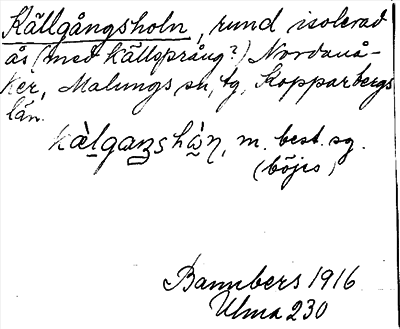 Källgångsholn, rund isolerad
ås (med källsprång?) Nordanå-
ker, Malungs sn, tg, Kopparbergs
län.
m. best. sg.
(böjes)
Bannbers 1916
Ulma 230